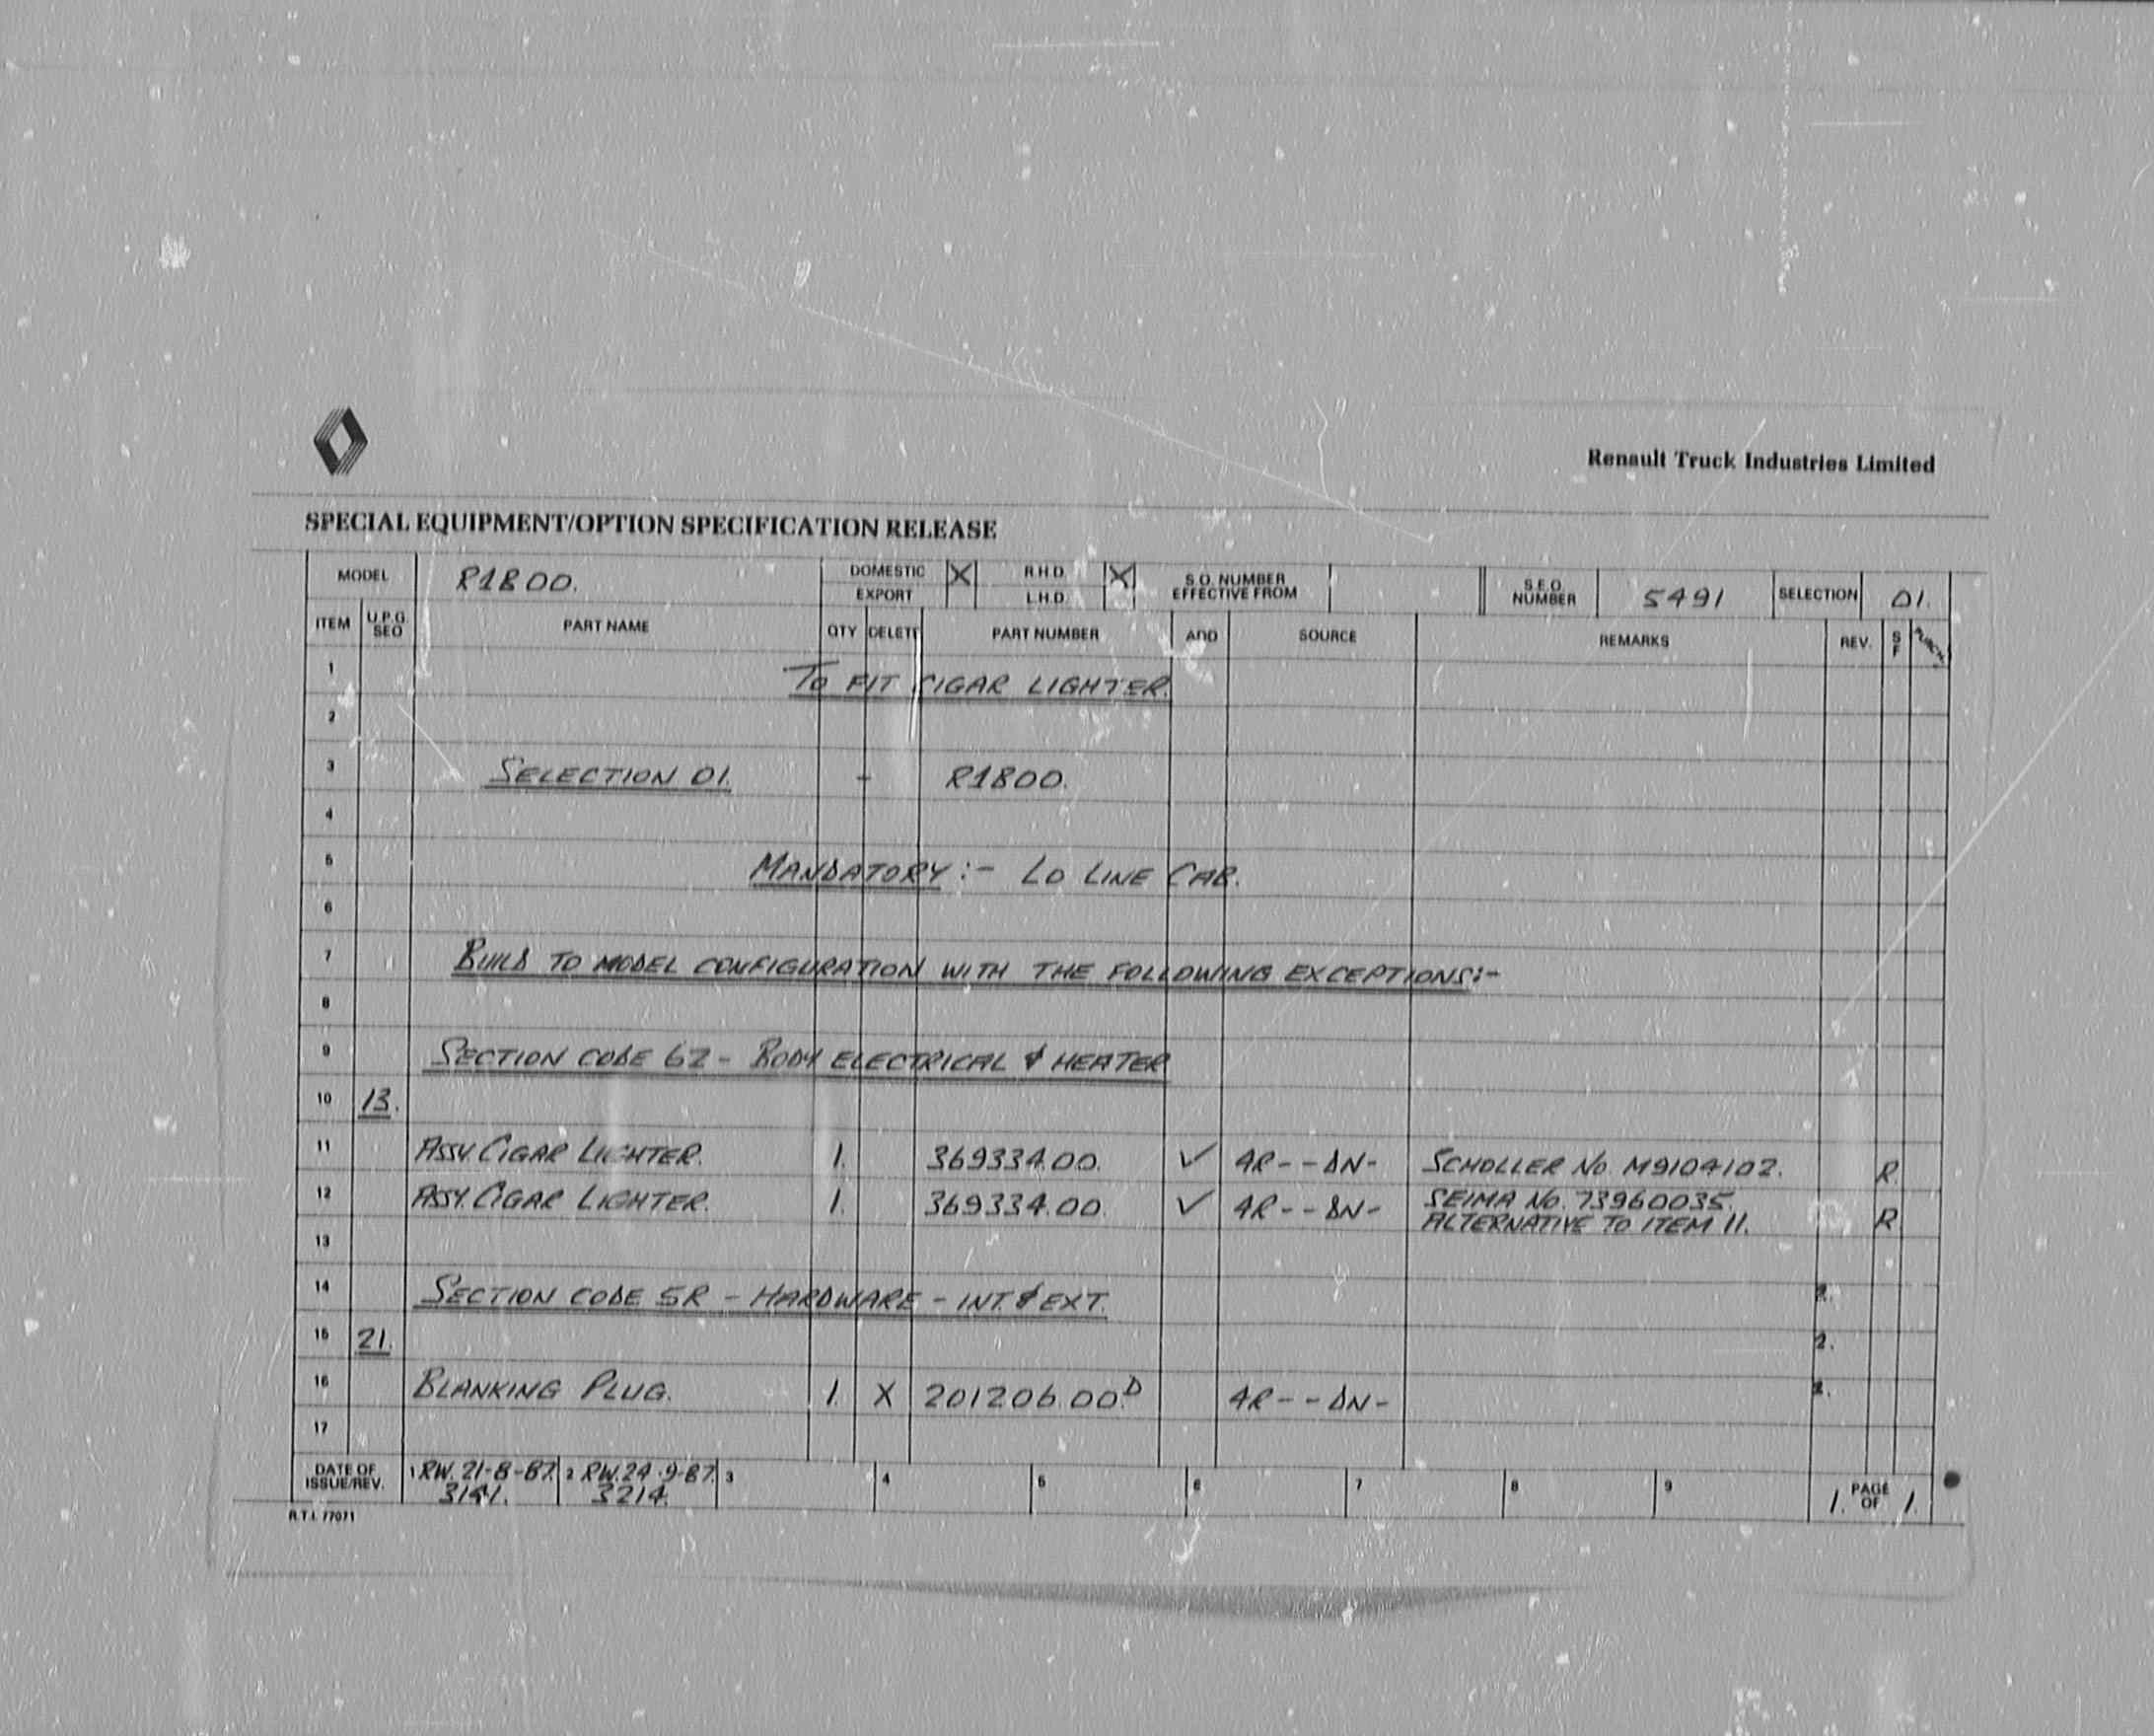 Renault Truck Industries Limited
SPECIAL EQUIPMENT/OPTION SPECIFICATION RELEASE
MODEL R1800. DOMESTIC X R.H.D. X S.O. NUMBER EFFECTIVE FROM S.E.O. NUMBER 5491 SELECTION 01.
EXPORT L.H.D.
ITEM U.P.G. SEQ PART NAME QTY DELETE PART NUMBER ADD SOURCE REMARKS REV. S F
1 TO FIT CIGAR LIGHTER.
2
3 SELECTION 01. - R1800.
4
5 MANDATORY:- LO LINE CAB.
6
7 BUILD TO MODEL CONFIGURATION WITH THE FOLLOWING EXCEPTIONS:-
8
9 SECTION CODE 62 - BODY ELECTRICAL & HEATER
10 13.
11 ASSY. CIGAR LIGHTER. 1. 369334.00. ✓ 4R--DN- SCHOLLER NO. M9104102. R
12 ASSY. CIGAR LIGHTER. 1. 369334.00. ✓ 4R--DN- SEIMA NO. 73960035. R
ALTERNATIVE TO ITEM 11.
13
14 SECTION CODE 5R - HARDWARE - INT. & EXT. 2.
15 21. 2.
16 BLANKING PLUG. 1. X 201206.00.D 4R--DN- 2.
17
DATE OF ISSUE/REV. 1 RW. 21-8-87. 2 RW. 24-9-87. 3 4 5 6 7 8 9 1. PAGE OF 1.
3214.
R.T.I. 77071